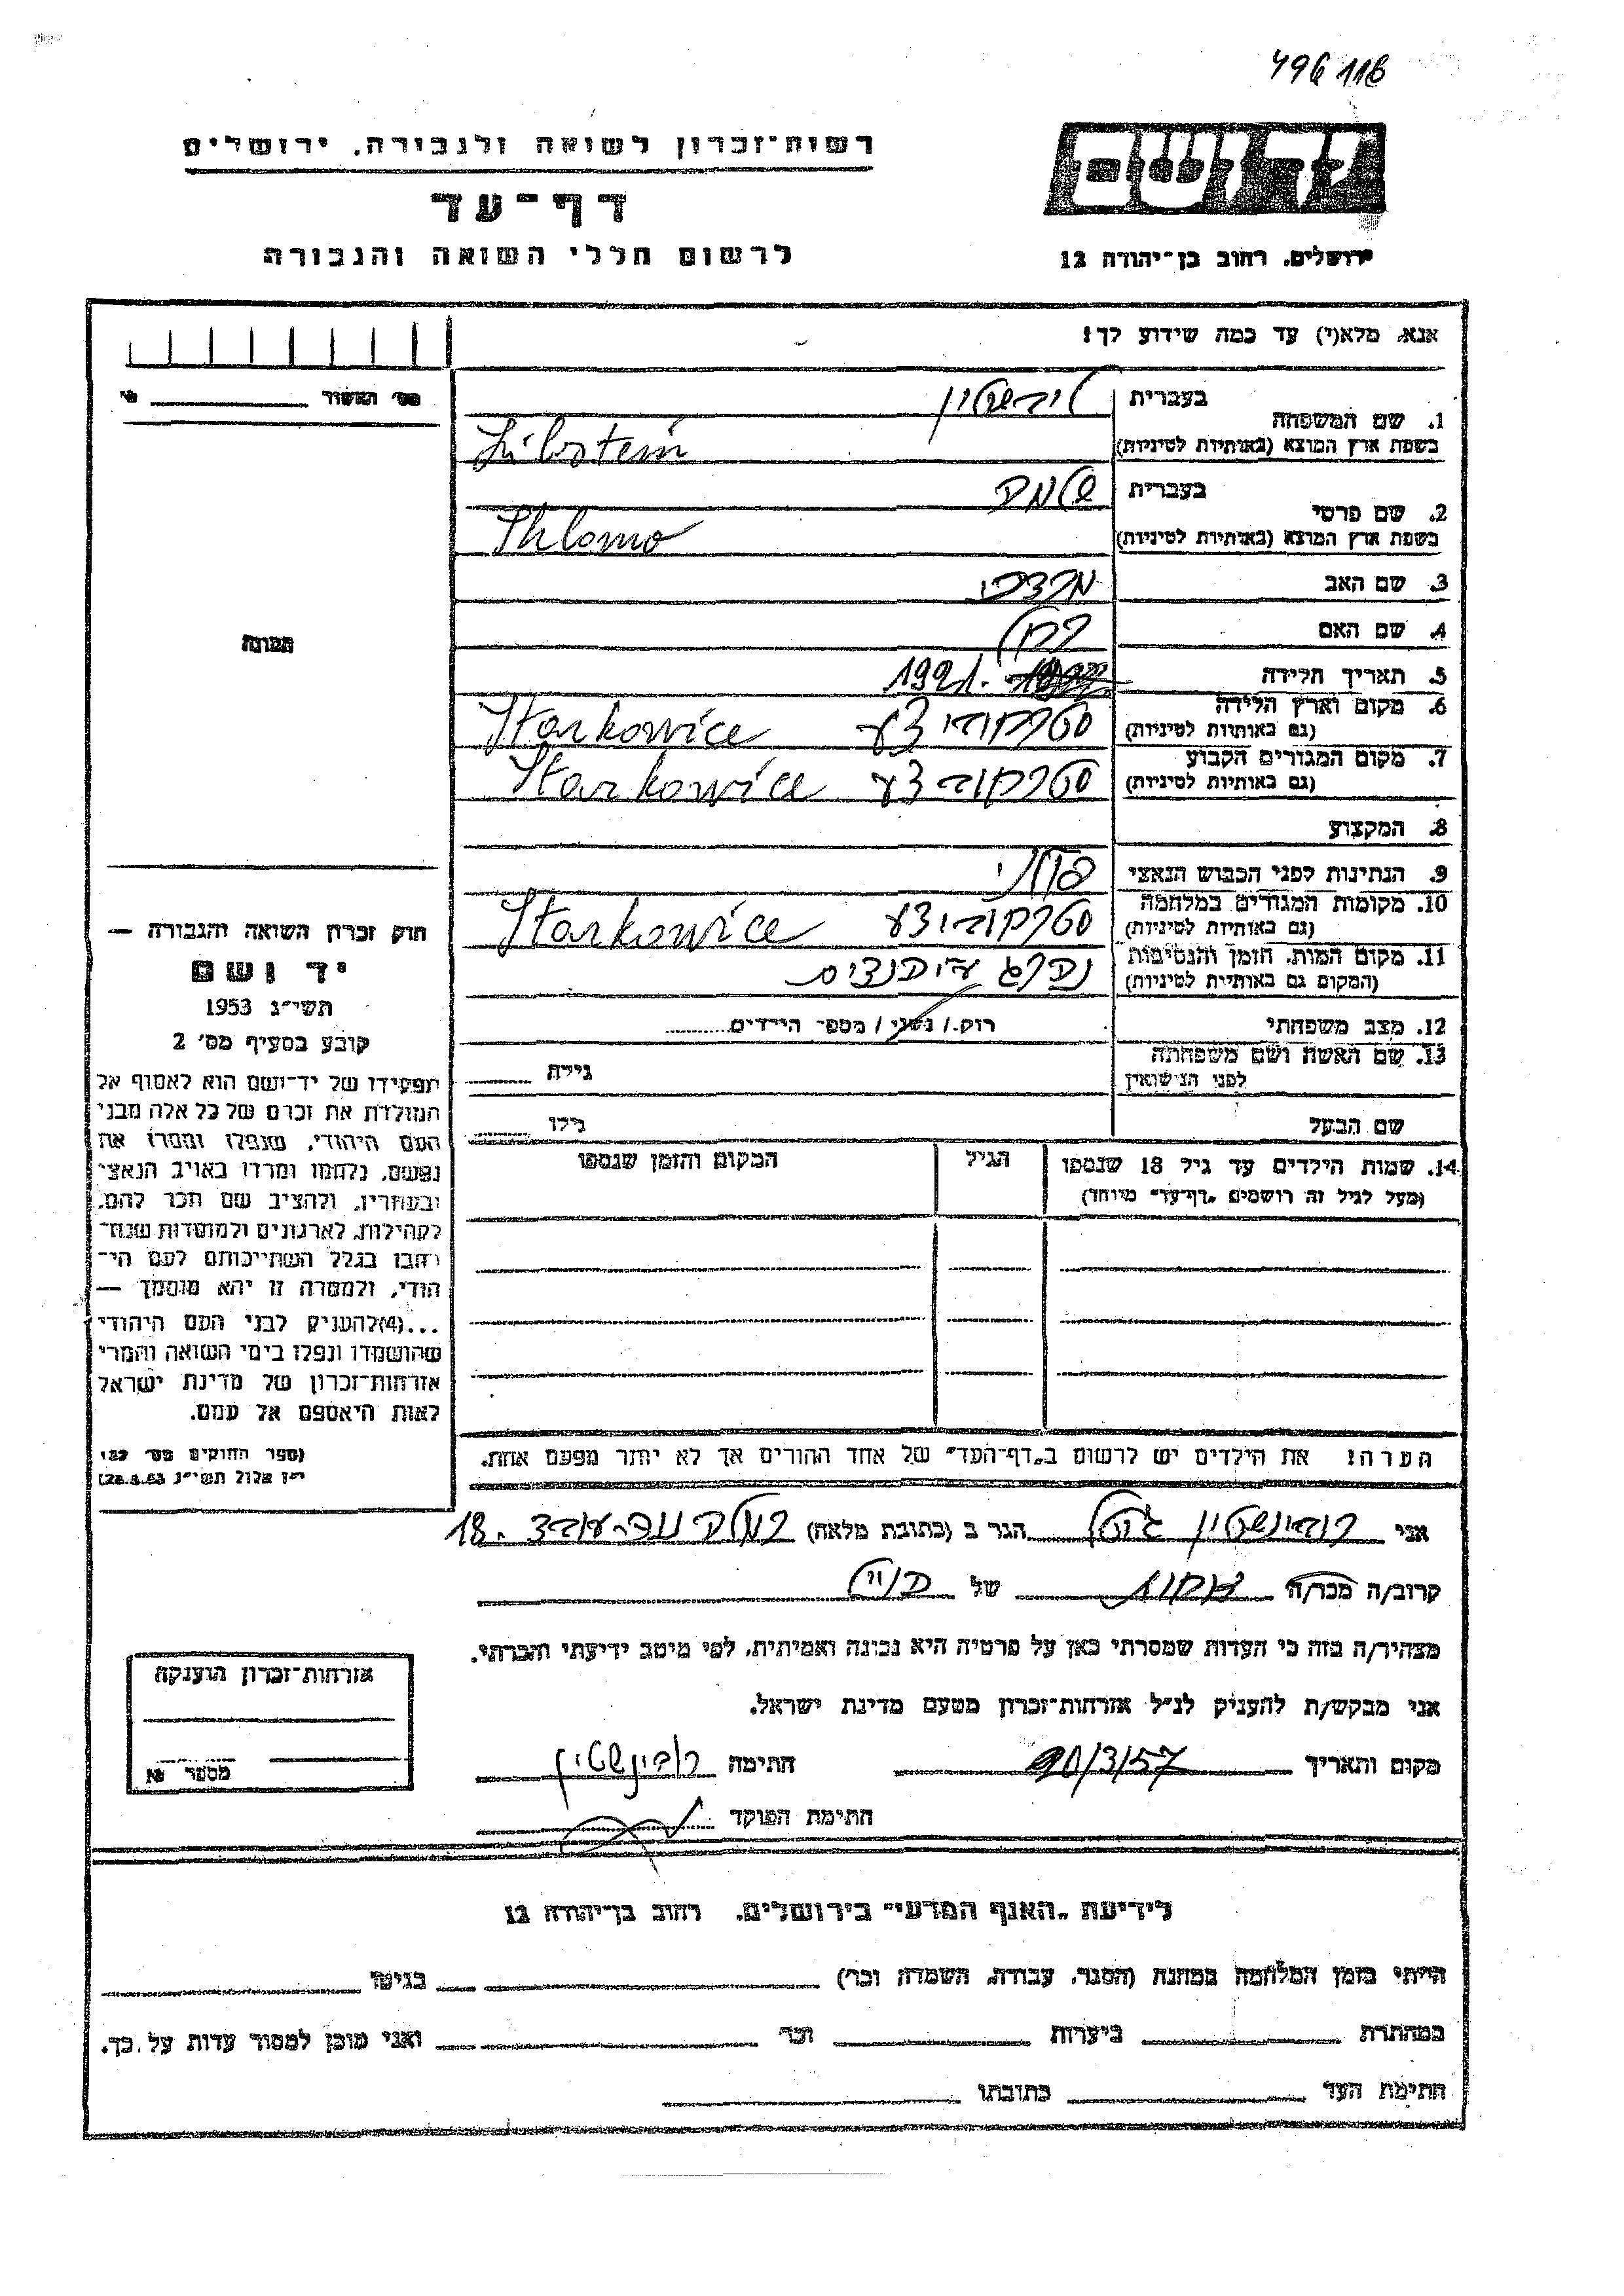 496116
רשות־זכרון לשואה ולגבורה, ירושלים
דף־עד
לרשום חללי השואה והגבורה
ירושלים, רחוב בן־יהודה 12
אנא, מלא(י) עד כמה שידוע לך!
מס' האשור
1. שם המשפחה
בעברית
בשפת ארץ המוצא (באותיות לטיניות)
Libstein
2. שם פרטי
בעברית
שלמה
בשפת ארץ המוצא (באותיות לטיניות)
Shlomo
3. שם האב מרדכי
4. שם האם
5. תאריך הלידה 1921.
6. מקום וארץ הלידה
(גם באותיות לטיניות)
סטרקוביצע Starkowice
7. מקום המגורים הקבוע
(גם באותיות לטיניות)
סטרקוביצע Starkowice
8. המקצוע
9. הנתינות לפני הכבוש הנאצי פולני
10. מקומות המגורים במלחמה
(גם באותיות לטיניות)
סטרקוביצע Starkowice
11. מקום המות, הזמן והנסיבות
(המקום גם באותיות לטיניות)
12. מצב משפחתי
רוק / נשוי / מספר הילדים
13. שם האשה ושם משפחתה
לפני הנישואין
גילה
שם הבעל
גילו
14. שמות הילדים עד גיל 18 שנספו
(מעל לגיל זה רושמים „דף־עד" מיוחד)
הגיל
המקום והזמן שנספו
הערה! את הילדים יש לרשום ב„דף־העד" של אחד ההורים אך לא יותר מפעם אחת.
תמונה
חוק זכרון השואה והגבורה —
יד ושם
תשי"ג 1953
קובע בסעיף מס' 2
תפקידו של יד־ושם הוא לאסוף אל
המולדת את זכרם של כל אלה מבני
העם היהודי, שנפלו ומסרו את
נפשם, נלחמו ומרדו באויב הנאצי
ובעוזריו, ולהציב שם וזכר להם,
לקהילות, לארגונים ולמוסדות שנח־
רבו בגלל השתייכותם לעם הי־
הודי, ולמטרה זו יהא מוסמך —
...(4) להעניק לבני העם היהודי
שהושמדו ונפלו בימי השואה והמרי
אזרחות־זכרון של מדינת ישראל
לאות היאספם אל עמם.
(ספר החוקים מס' 132,
י"ז אלול תשי"ג 28.8.53)
אני רובינשטיין הגר ב (כתובת מלאה) 18.
קרוב/ה מכר/ה של
מצהיר/ה בזה כי העדות שמסרתי כאן על פרטיה היא נכונה ואמיתית, לפי מיטב ידיעתי והכרתי.
אני מבקש/ת להעניק לנ"ל אזרחות־זכרון מטעם מדינת ישראל.
מקום ותאריך 20/3/57 חתימה רובינשטיין
חתימת הפוקד
אזרחות־זכרון הוענקה
מספר
לידיעת „האגף המדעי" בירושלים, רחוב בן־יהודה 12
הייתי בזמן המלחמה במחנה (הסגר, עבודה, השמדה וכו') בגיטו
במחתרת ביערות וכו' ואני מוכן למסור עדות על כך.
חתימת העד כתובתו